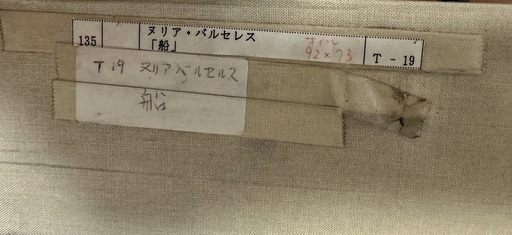 135 ヌリア・バルセレス
「船」 92×73 T - 19
T 19 ヌリアバルセルス
船